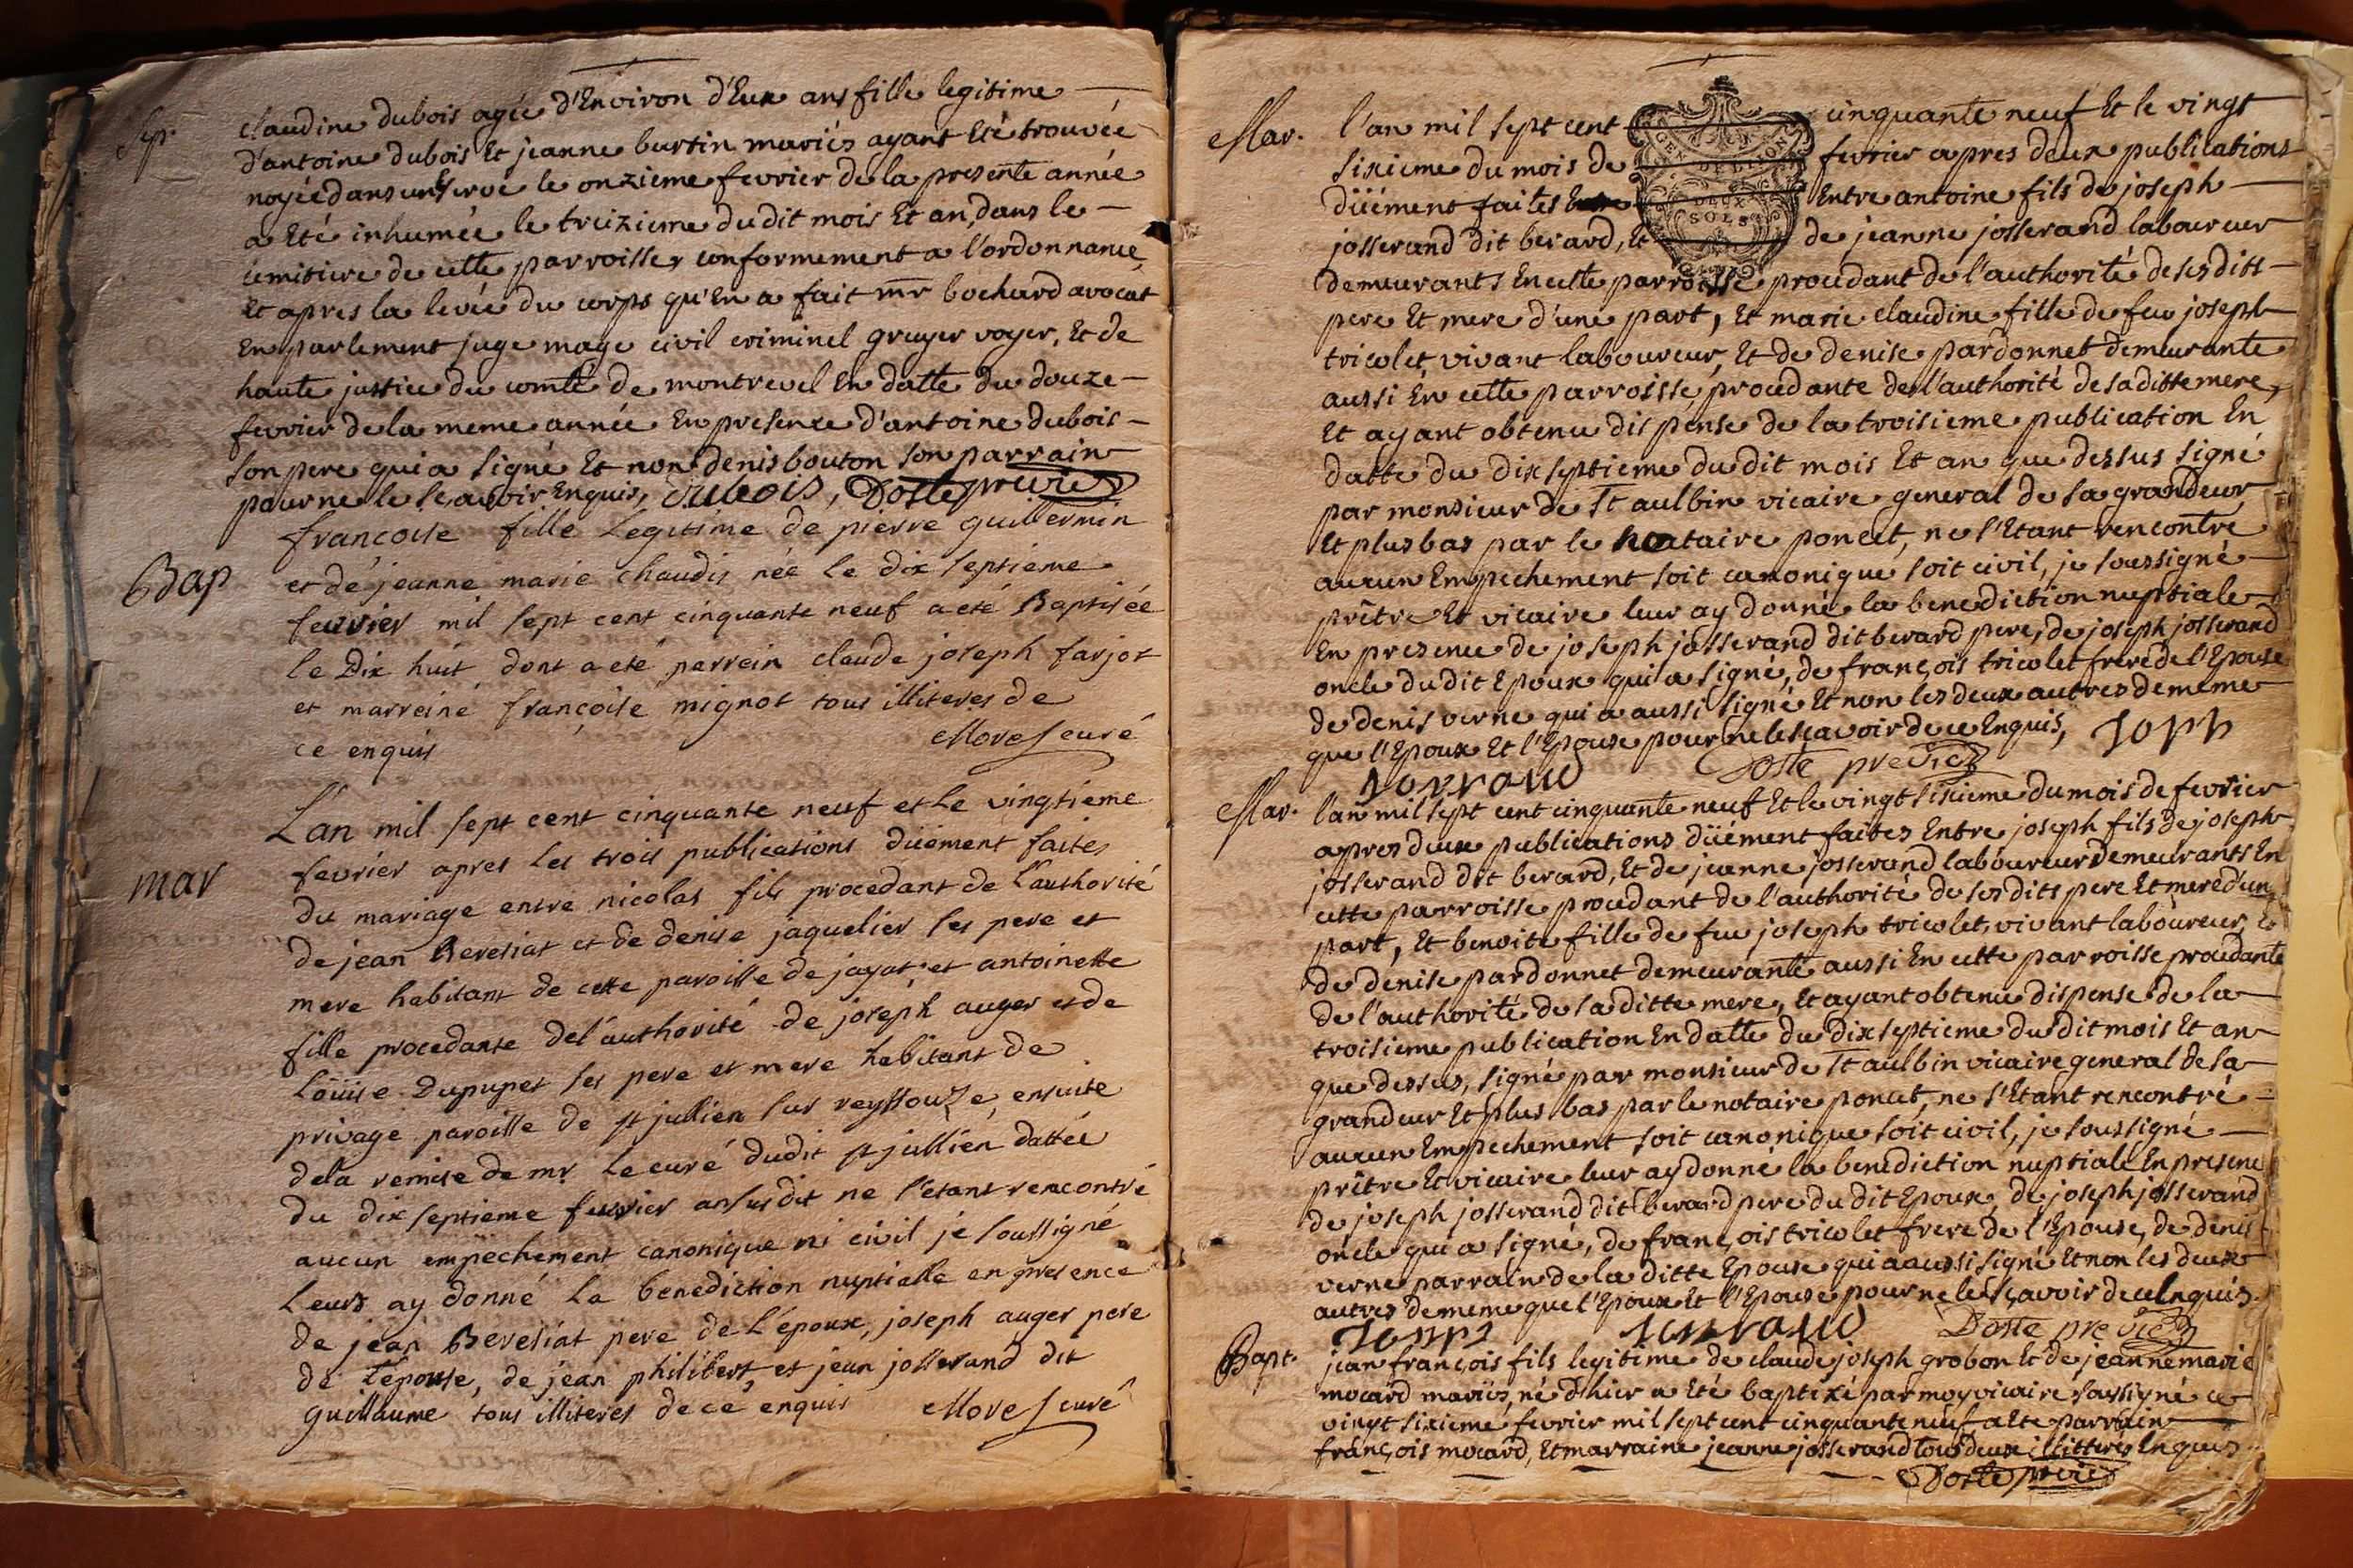 Sep.
claudine dubois agée d'Environ d'Eux ans fille legitime
d'antoine dubois Et jeanne burtin mariés ayant Eté trouvée
noyée dans un serve le onzieme fevrier de la presente année
a Eté inhumée le treizieme du dit mois Et an, dans le
cemitiere de cette parroisse, conformement a l'ordonnance,
Et apres la levée du corps qu'En a fait mr bochard avocat
En parlement juge mage civil criminel gruyer voyer, Et de
haute justice du comté de montrevel En datte du douze
fevrier de la meme année En presence d'antoine dubois
son pere qui a signé Et non denis bouton son parrain
pour ne le sçavoir Enquis, Dubois, Doste pre vic
Bap
francoise fille Legitime de pierre guillermin
et de jeanne marie chaudis née le dix septieme
feuvrier mil sept cent cinquante neuf a eté Baptisée
le Dix huit dont a eté parrein claude joseph farjot
et marreine françoise mignot tous illiteres de
ce enquis
More curé
mar
L'an mil sept cent cinquante neuf et le vingtieme
fevrier apres les trois publications düement faites
du mariage entre nicolas fils procedant de l'authorité
de jean Beresiat et de denise jaquelier ses pere et
mere habitant de cette paroisse de jayat et antoinette
fille procedante de l'authorité de joseph auger et de
Loüise Dupupet ses pere et mere habitant de
privage paroisse de st jullien sur reyssouze, ensuite
de la remise de mr le curé dudit st jullien dattée
du dix septieme feuvrier an susdit ne s'etant rencontré
aucun empechement canonique ni civil je soussigné
Leurs ay donné la benediction nuptialle en presence
de jean Beresiat pere de L'époux, joseph auger pere
de L'épouse, de jean philibert, et jean josserand dit
guillaume tous illiteres de ce enquis More curé
Mar.
l'an mil sept cent cinquante neuf Et le vingt
GEN. DE DIJON
DEUX SOLS
sixieme du mois de fevrier apres deux publications
düément faites Entre antoine fils de joseph
josserand dit berard, Et de jeanne josserand laboureur
demeurants En cette parroisse, procedant de l'authorité de ses dits
pere Et mere d'une part, Et marie claudine fille de feu joseph
tricolet, vivant laboureur, Et de denise pardonnet demeurante
aussi En cette parroisse, procedante de l'authorité de sa ditte mere,
Et ayant obtenu dispense de la troisieme publication En
datte du dix septieme du dit mois Et an que dessus signé
par monsieur de st aulbin vicaire general de sa grandeur
Et plus bas par le notaire poncet, ne s'Etant rencontré
aucun Empechement soit canonique soit civil, je soussigné
prêtre Et vicaire leur ay donné la benediction nuptiale
En presence de joseph josserand dit berard pere, de joseph josserand
oncle du dit Epoux qui a signé, de françois tricolet frere de l'Epouse
de denis verne qui a aussi signé Et non les deux autres de meme
que l'Epoux Et l'Epouse pour ne le sçavoir de ce Enquis,
Doste pre vic
Mar.
l'an mil sept cent cinquante neuf Et le vingt sixieme du mois de fevrier
apres deux publications düément faites Entre joseph fils de joseph
josserand dit berard, Et de jeanne josserand laboureur demeurants En
cette parroisse procedant de l'authorité de ses dits pere Et mere d'une
part, Et benoite fille de feu joseph tricolet, vivant laboureur, Et
de denise pardonnet demeurante aussi En cette parroisse procedante
de l'authorité de sa ditte mere, Et ayant obtenu dispense de la
troisieme publication En datte du dix septieme du dit mois Et an
que dessus, signé par monsieur de st aulbin vicaire general de sa
grandeur Et plus bas par le notaire poncet, ne s'Etant rencontré
aucun Empechement soit canonique soit civil, je soussigné
prêtre Et vicaire leur ay donné la benediction nuptiale En presence
de joseph josserand dit berard pere du dit Epoux, de joseph josserand
oncle qui a signé, de françois tricolet frere de l'Epouse, de denis
verne parrain de la ditte Epouse qui a aussi signé Et non les deux
autres de meme que l'Epoux Et l'Epouse pour ne le sçavoir de ce Enquis.
Doste pre vic
Bapt.
jean françois fils legitime de claude joseph grobon Et de jeanne marie
mocard mariés, né d'hier a Eté baptizé par moy vicaire soussigné ce
vingt sixieme fevrier mil sept cent cinquante neuf a Eté parrain
françois mocard, Et marraine jeanne josserand tous deux illitteres Enquis
Doste pre vic